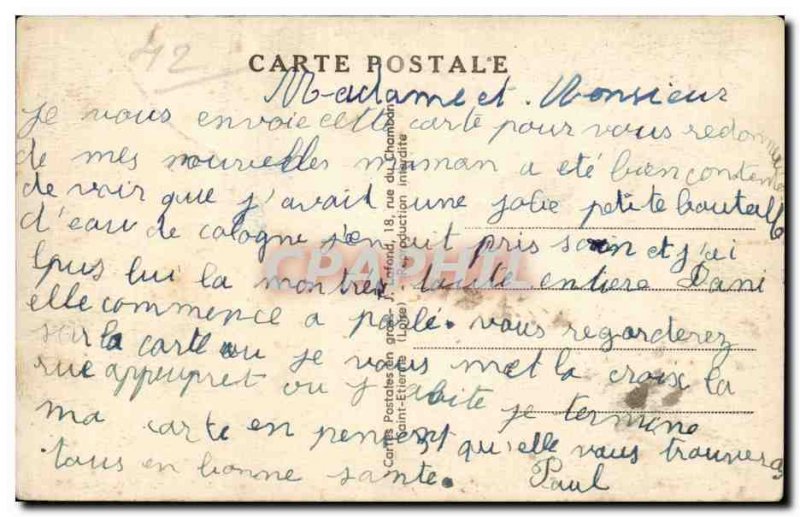 42
CARTE POSTALE
Madame et Monsieur
je vous envoie cette carte pour vous redonner
de mes nouvelles maman a été bien contente
de voir que j'avait une jolie petite bouteille
d'eau de cologne j'en ait pris soin et j'ai
pus lui la montrer toute entiere Dani
elle commence a parlé. vous regarderez
sur la carte ou je vous met la croix la
rue appeupret ou j'abite je termine
ma carte en pensent qu'elle vous trouveras
tous en bonne sante. Paul
Cartes Postales en gros - J. 18, rue du Chambon
Saint-Etienne (Loire) - Reproduction interdite
CPAPHIL